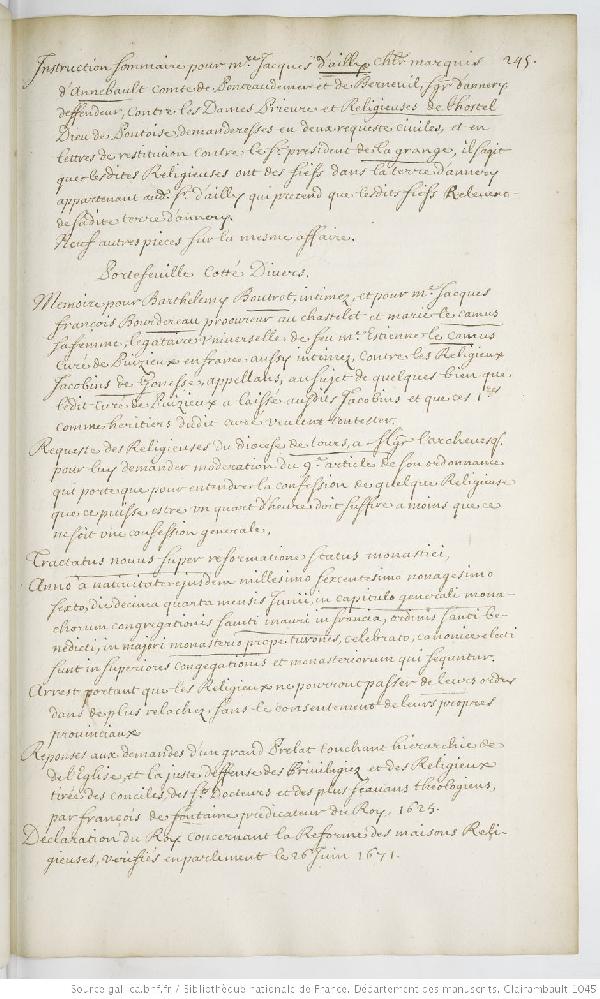 245.
Instruction sommaire pour m.re Jacques d'ailly chlr marquis
d'Annebault comte de Ponteaudemer et de Berneuil, sgr d'annery
deffendeur, contre les Dames Prieure et Religieuses de l'hostel
Dieu de Pontoise demanderesses en deux requeste civiles, et en
lettres de restitution contre le sr. president de la grange, il s'agit
que lesdites Religieuses ont des fiefs dans la terre d'annery
appartenant aud. sr. d'ailly qui pretend que lesdits fiefs Relevent
de sadite terre d'annery.
Neuf autres pieces sur la mesme affaire.
Portefeuille cotté Divers.
Memoire pour Barthelemy Boutrot, intimez, et pour me. Jacques
françois Bourdereau procureur au chastelet et marie le camus
sa femme, legataire vniverselle de feu me. Estienne le camus
Curé de Puizieux en france aussy intimez, Contre les Religieux
Jacobins de Gonesse, appellans, au sujet de quelques bien que
ledit curé de Puizieux a laissé ausdits Jacobins et que ces 1.ers
comme heritiers dudit curé veulent contester.
Requeste des Religieuses du diocese de tours, a Mgr l'archevesq.
pour luy demander moderation du 9.e article de son ordonnance
qui porte que pour entendre la confession de quelque Religieuse
que ce puisse estre vn quart d'heure doit suffire a moins que ce
ne soit vne confession generale.
Tractatus nouus super reformatione status monastici,
Anno a natiuitate ejusdem millesimo sexcentesimo nonagesimo
sexto, die decima quarta mensis Junii, in capitulo generali mona-
chorum congregationis sancti mauri in francia, ordinis sancti be-
nedicti, in majori monasterio prope turones, celebrato, canonice electi
sunt in superiores congegationis et monasteriorum qui sequntur.
Arrest portant que les Religieux ne pourront passer de leurs ordres
dans de plus relachez, sans le consentement de leurs propres
provinciaux
Reponses aux demandes d'un grand Prelat touchant hierarchie de
de l'Eglise, et la juste deffense des Priuiligiez et des Religieux
tirée des conciles, des sts. Docteurs et des plus sçavans theologiens,
par françois de fontaine predicateur du Roy, 1625.
Declaration du Roy concernant la Reforme des maisons Reli-
gieuses, verifiés en parlement le 26 Juin 1671.
Source gallica.bnf.fr / Bibliothèque nationale de France. Département des manuscrits. Clairambault 1045